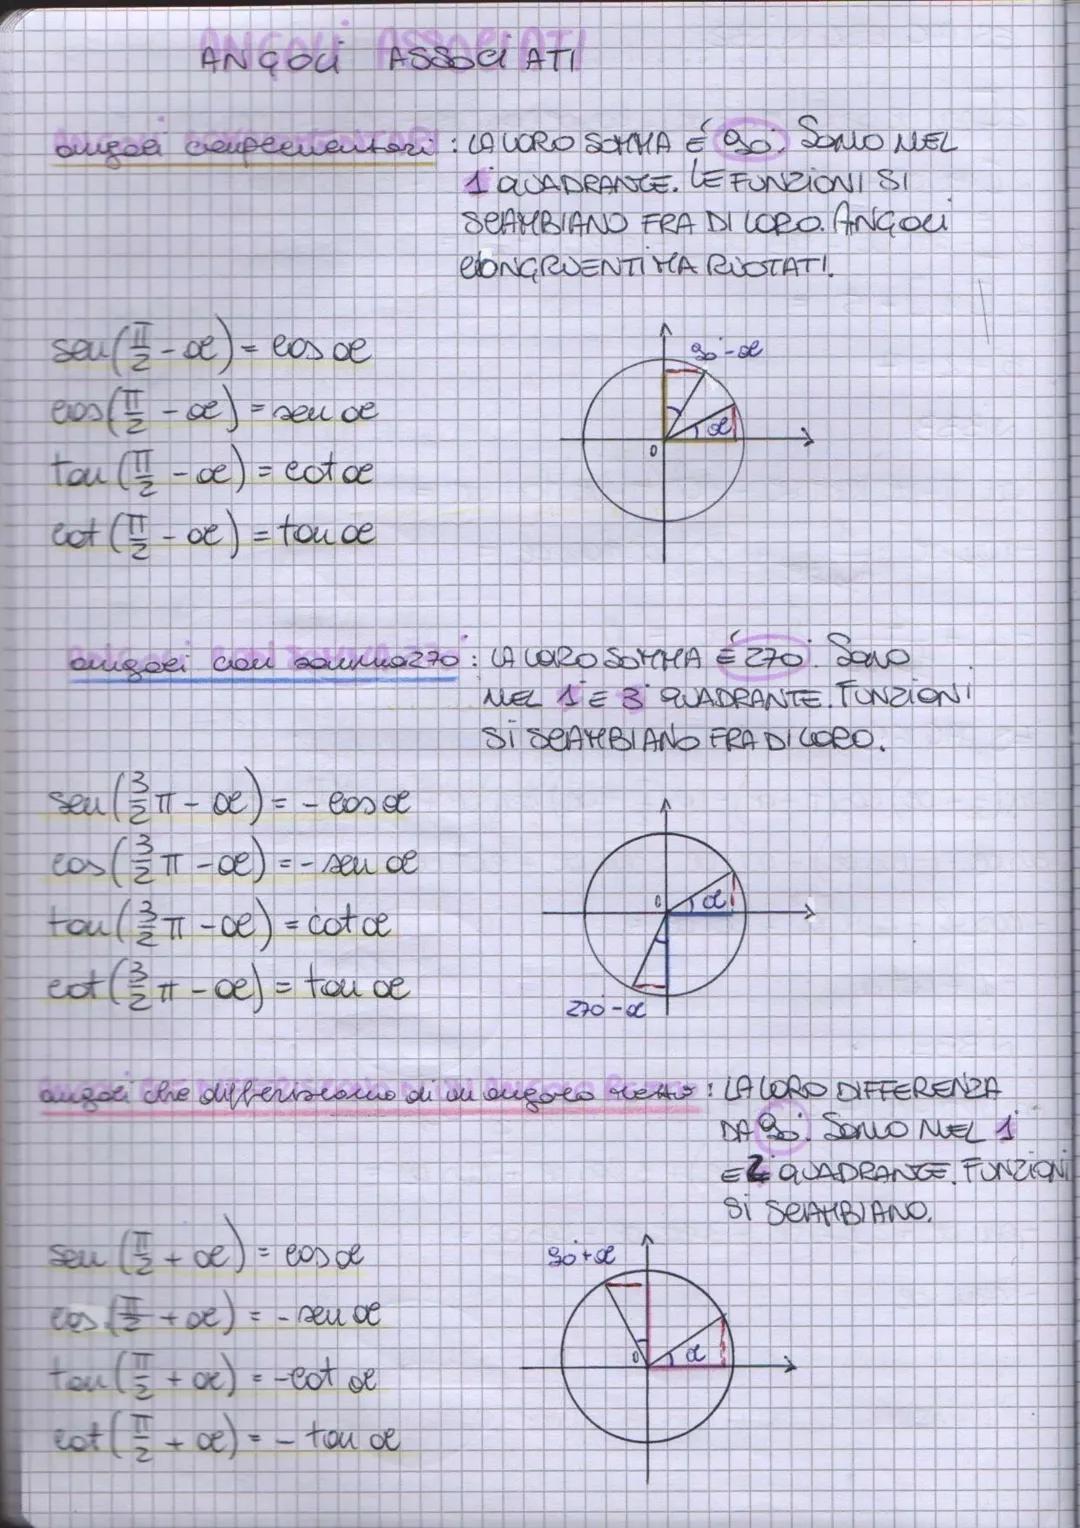 ANGOLI ASSOCIATI
angoli complementari : LA LORO SOMMA É 90°. SONO NEL
1° QUADRANTE. LE FUNZIONI SI
SCAMBIANO FRA DI LORO. ANGOLI
CONGRUENTI MA RUOTATI.
sen(π/2 - α) = cos α
cos(π/2 - α) = sen α
tan(π/2 - α) = cot α
cot(π/2 - α) = tan α
90°-α
α
0
angoli con somma 270° : LA LORO SOMMA É 270°. SONO
NEL 1° E 3° QUADRANTE. FUNZIONI
SI SCAMBIANO FRA DI LORO.
sen(3/2 π - α) = - cos α
cos(3/2 π - α) = - sen α
tan(3/2 π - α) = cot α
cot(3/2 π - α) = tan α
0
α
270°-α
angoli che differiscono di un angolo retto : LA LORO DIFFERENZA
DA 90°. SONO NEL 1°
E 2° QUADRANTE. FUNZIONI
SI SCAMBIANO.
sen(π/2 + α) = cos α
cos(π/2 + α) = - sen α
tan(π/2 + α) = -cot α
cot(π/2 + α) = - tan α
90°+α
0
α